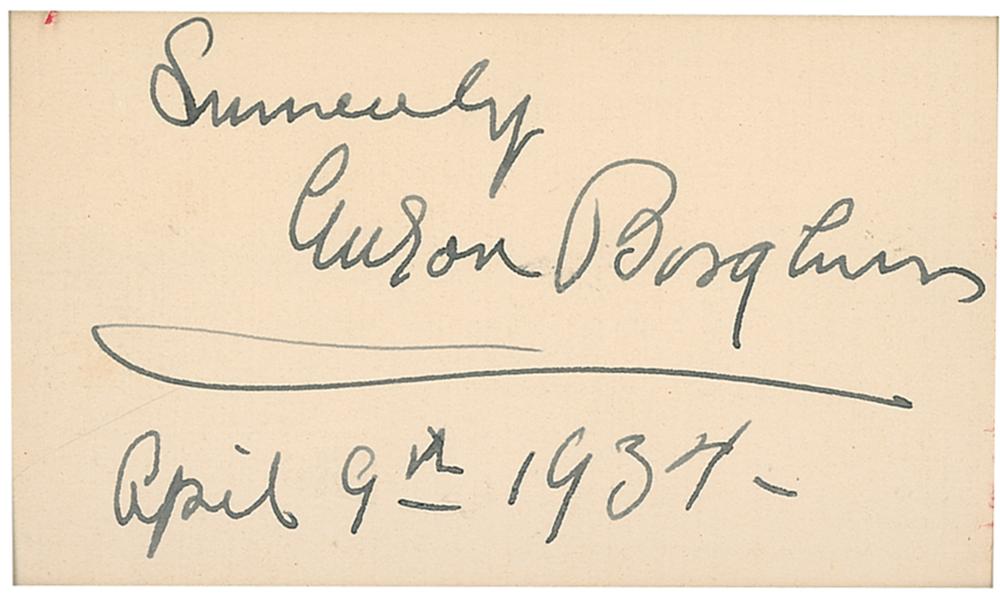 Sincerely
Gutzon Borglum
April 9th 1934 -